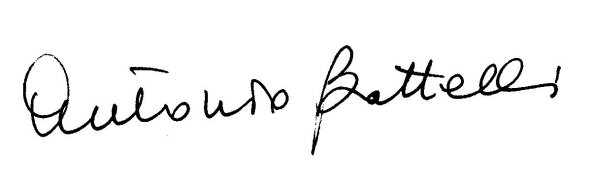 Antonio Battelli